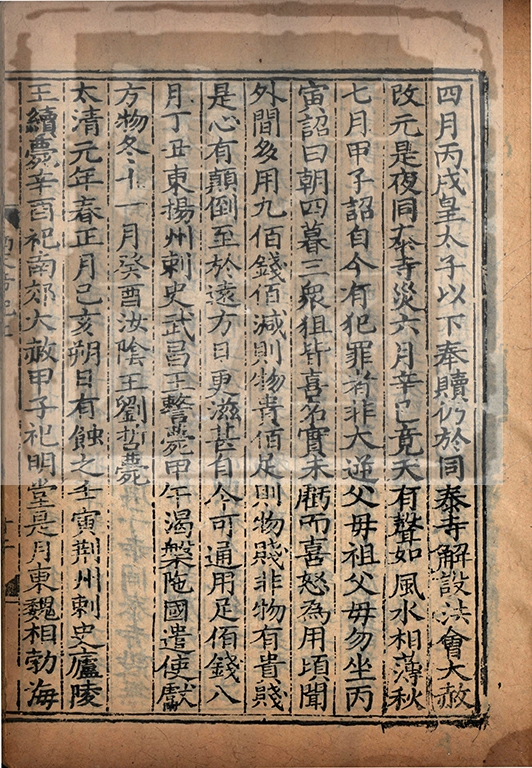 四月丙戌皇太子以下奉贖仍於同泰寺解設法會大赦
改元是夜同泰寺災六月辛巳竟天有聲如風水相薄秋
七月甲子詔自今有犯罪者非大逆父母祖父母勿坐丙
寅詔曰朝四暮三衆狙皆喜名實未虧而喜怒為用頃聞
外間多用九佰錢佰減則物貴佰足則物賤非物有貴賤
是心有顛倒至於遠方日更滋甚自今可通用足佰錢八
月丁丑東揚州刺史武昌王詧薨甲午渴槃陁國遣使獻
方物冬十一月癸酉汝陰王劉哲薨
太清元年春正月己亥朔日有蝕之壬寅荆州刺史廬陵
王續薨辛酉祀南郊大赦甲子祀明堂是月東魏相勃海